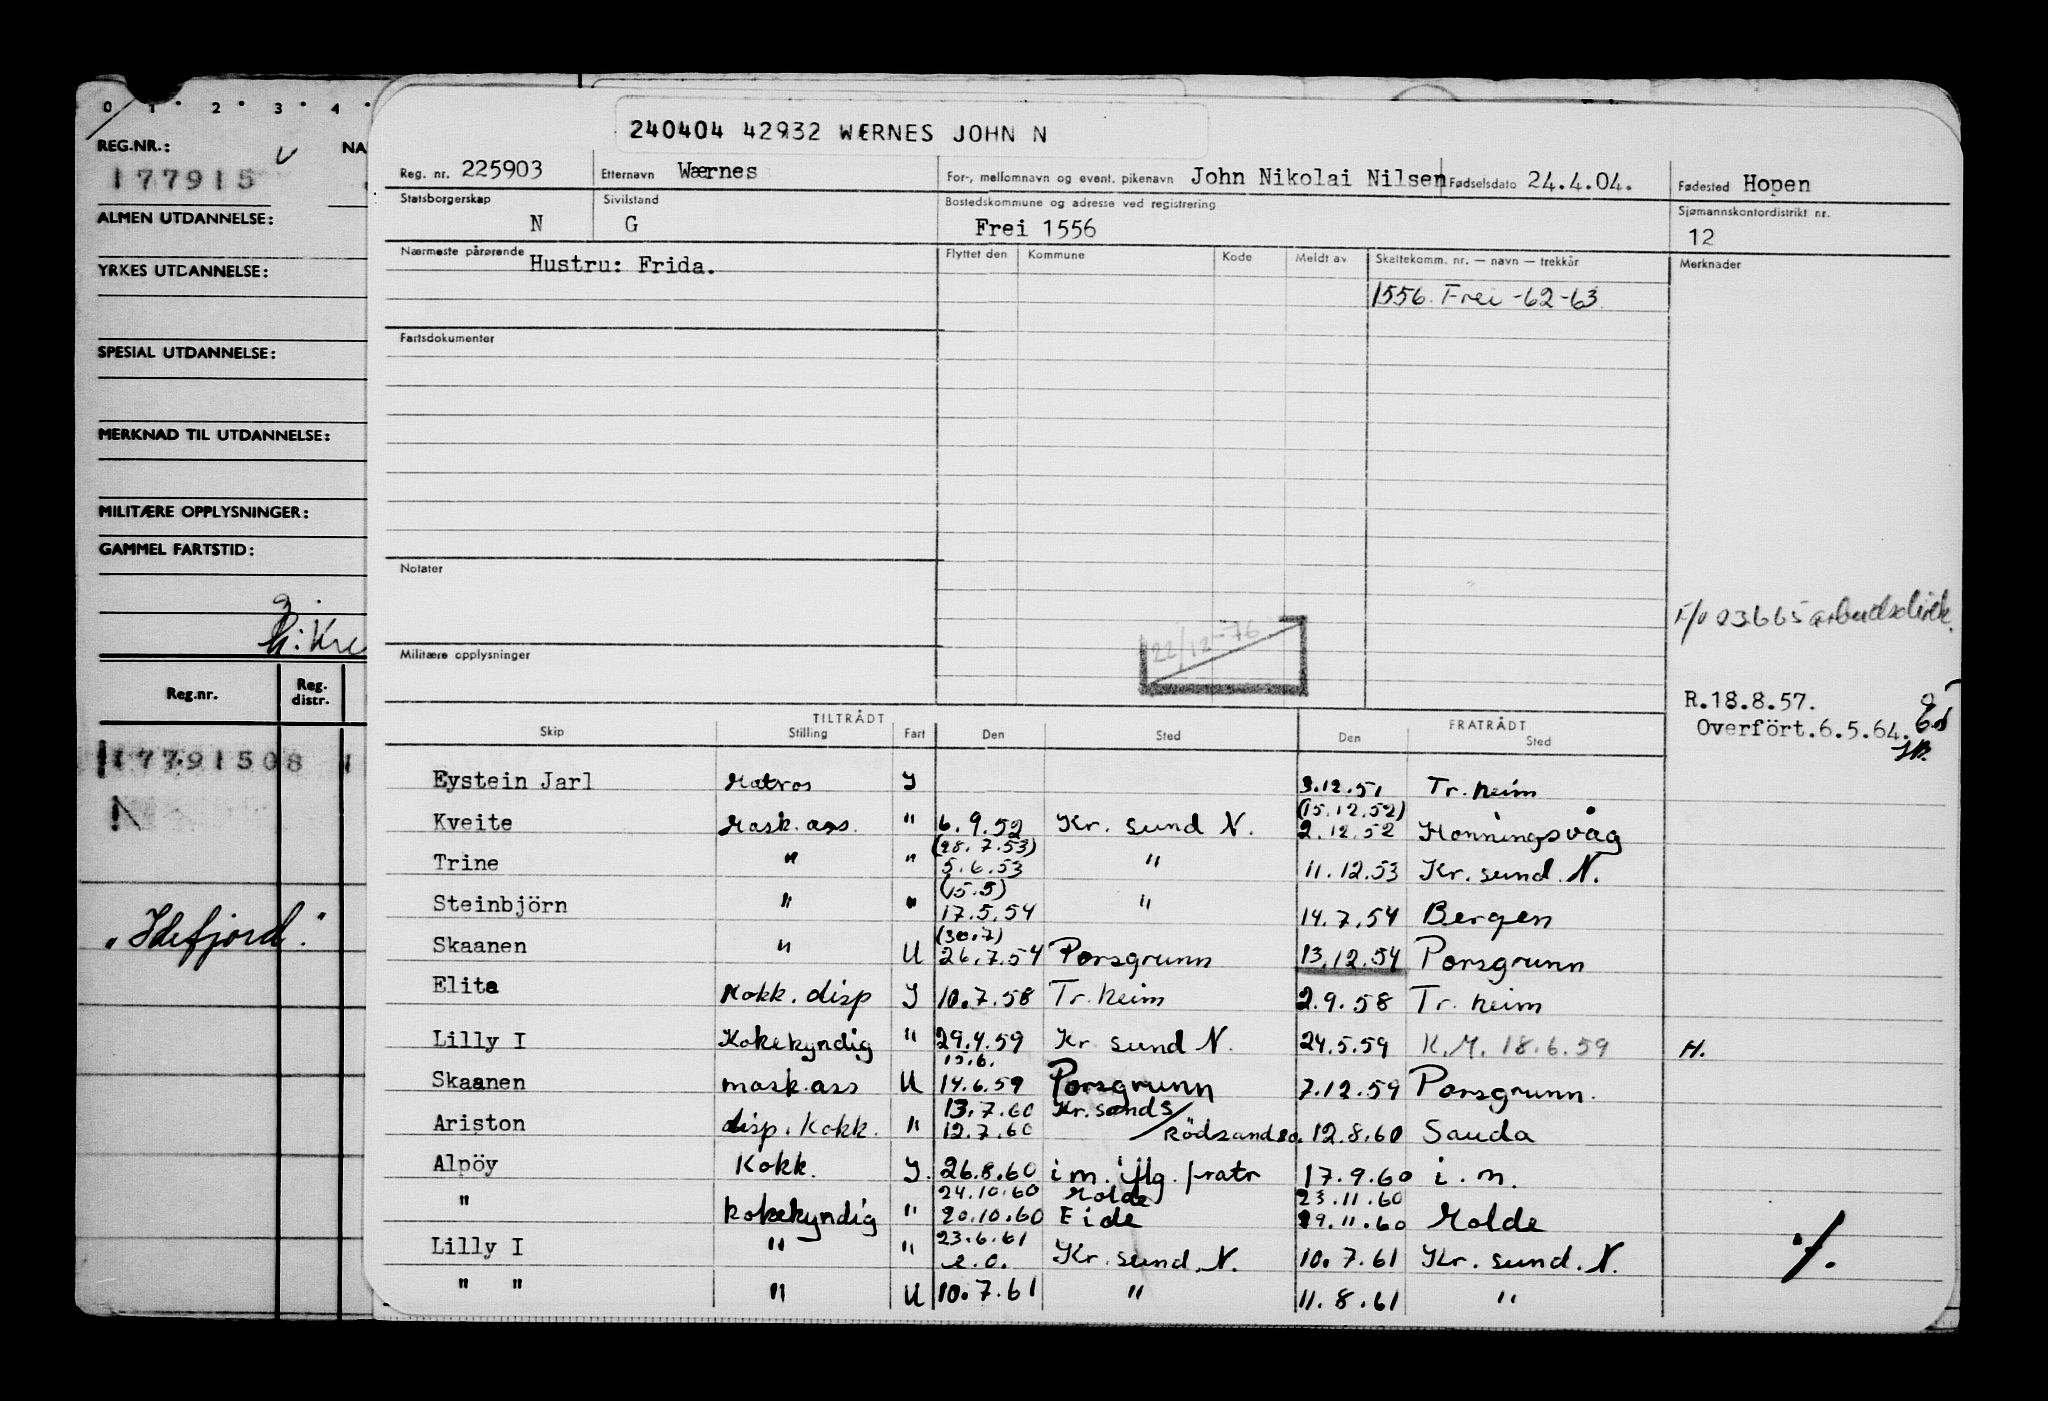 0 1 2 3 4
REG.NR.:
NA
177915
ALMEN UTDANNELSE:
YRKES UTDANNELSE:
SPESIAL UTDANNELSE:
MERKNAD TIL UTDANNELSE:
MILITÆRE OPPLYSNINGER:
GAMMEL FARTSTID:
Reg.nr. Reg. distr.
17791508 1
N
"Idefjord."
240404 42932 WÆRNES JOHN N
Reg. nr. 225903 Etternavn Wærnes For-, mellomnavn og event. pikenavn John Nikolai Nilsen Fødselsdato 24.4.04. Fødested Hopen
Statsborgerskap N Sivilstand G Bostedskommune og adresse ved registrering Frei 1556 Sjømannskontordistrikt nr. 12
Nærmeste pårørende Hustru: Frida. Flyttet den Kommune Kode Meldt av Skattekomm. nr. — navn — trekkår Merknader
1556. Frei -62-63
Fartsdokumenter
Notater
22/12-76
Militære opplysninger
R.18.8.57.
Overfört.6.5.64.
TILTRÅDT FRATRÅDT
Skip Stilling Fart Den Sted Den Sted
Eystein Jarl Matros I 3.12.51 Tr. heim
(15.12.52)
Kveite Mask. ass. " 6.9.52 Kr. sund N. 2.12.52 Honningsvåg
(28.7.53)
Trine " " 5.6.53 " 11.12.53 Kr. sund. N.
(15.5)
Steinbjörn " " 17.5.54 " 14.7.54 Bergen
(30.7)
Skaanen " U 26.7.54 Porsgrunn 13.12.54 Porsgrunn
Elita Kokk. disp I 10.7.58 Tr. heim 2.9.58 Tr. heim
Lilly I Kokekyndig " 29.4.59 Kr sund N. 24.5.59 K.M. 18.6.59 H.
15.6.
Skaanen mask. ass U 14.6.59 Porsgrunn 7.12.59 Porsgrunn.
13.7.60 Kr. sands/
Ariston disp. Kokk. " 12.7.60 Rödsand 12.8.60 Sauda
Alpöy Kokk. I. 26.8.60 i m. iflg. fratr 17.9.60 i. m.
24.10.60 Molde 23.11.60
" kokekyndig " 20.10.60 Eide 29.11.60 Molde
23.6.61
Lilly I " " e.o. Kr. sund. N. 10.7.61 Kr. sund. N.
" " " U 10.7.61 " 11.8.61 "